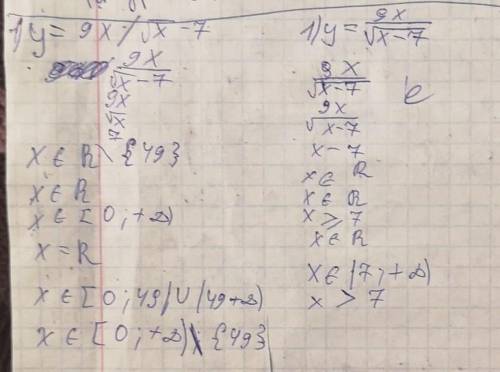 1) y = 9x/√x - 7
9x
√x - 7
9x
√x
7
x ∈ R \ {49}
x ∈ R
x ∈ [0; +∞)
x = R
x ∈ [0; 49) ∪ (49 +∞)
x ∈ [0; +∞) \ {49}
1) y = 9x/√x-7
9x
√x-7
9x
√x-7
x - 7
x ∈ R
x ∈ R
x ⩾ 7
x ∈ R
x ∈ (7; +∞)
x > 7